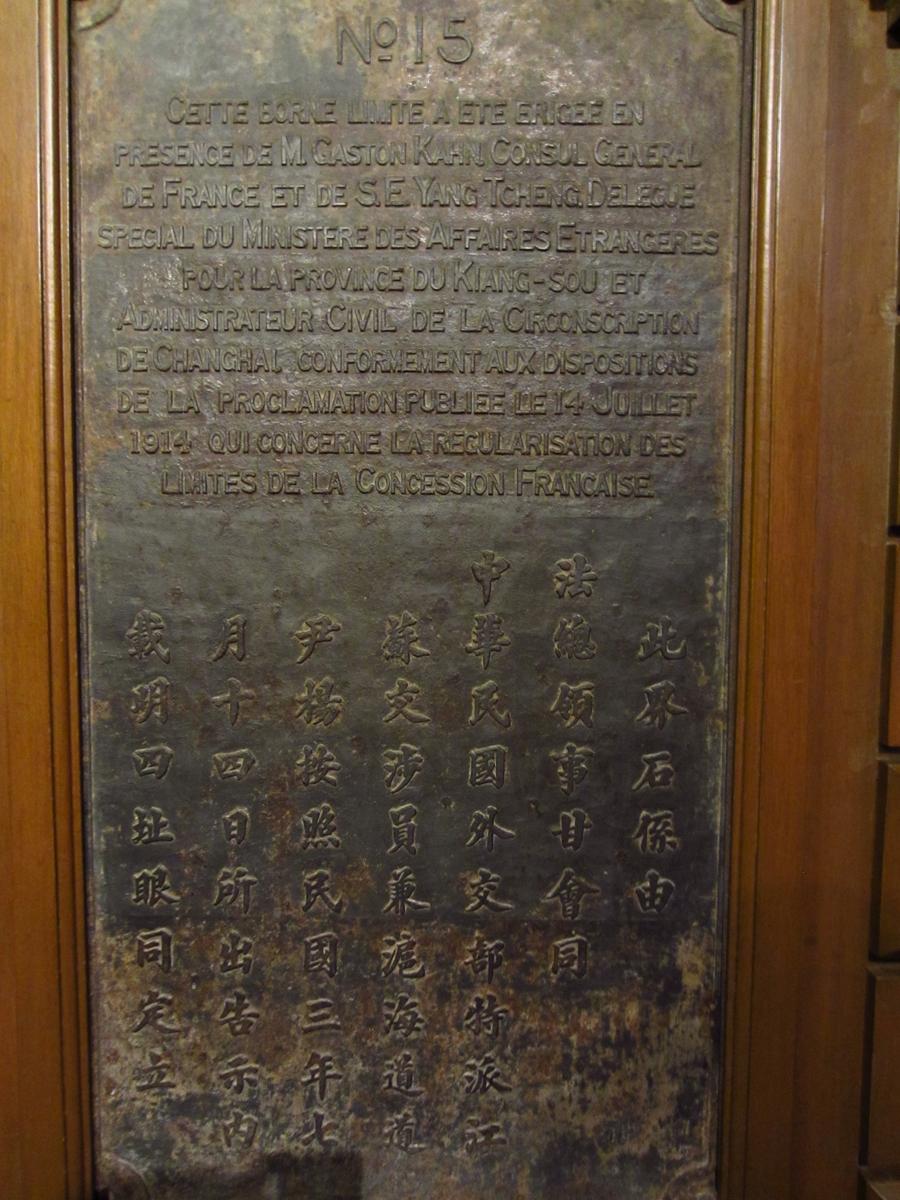 No 15
CETTE BORNE LIMITE A ETE ERIGEE EN
PRESENCE DE M. GASTON KAHN, CONSUL GENERAL
DE FRANCE ET DE S.E. YANG TCHENG, DELEGUE
SPECIAL DU MINISTERE DES AFFAIRES ETRANGERES
POUR LA PROVINCE DU KIANG-SOU ET
ADMINISTRATEUR CIVIL DE LA CIRCONSCRIPTION
DE CHANGHAI, CONFORMEMENT AUX DISPOSITIONS
DE LA PROCLAMATION PUBLIEE LE 14 JUILLET
1914 QUI CONCERNE LA REGULARISATION DES
LIMITES DE LA CONCESSION FRANCAISE
此界石係由
法總領事甘會同
中華民國外交部特派江
蘇交涉員兼滬海道道
尹楊按照民國三年七
月十四日所出告示內
載明四址眼同定立